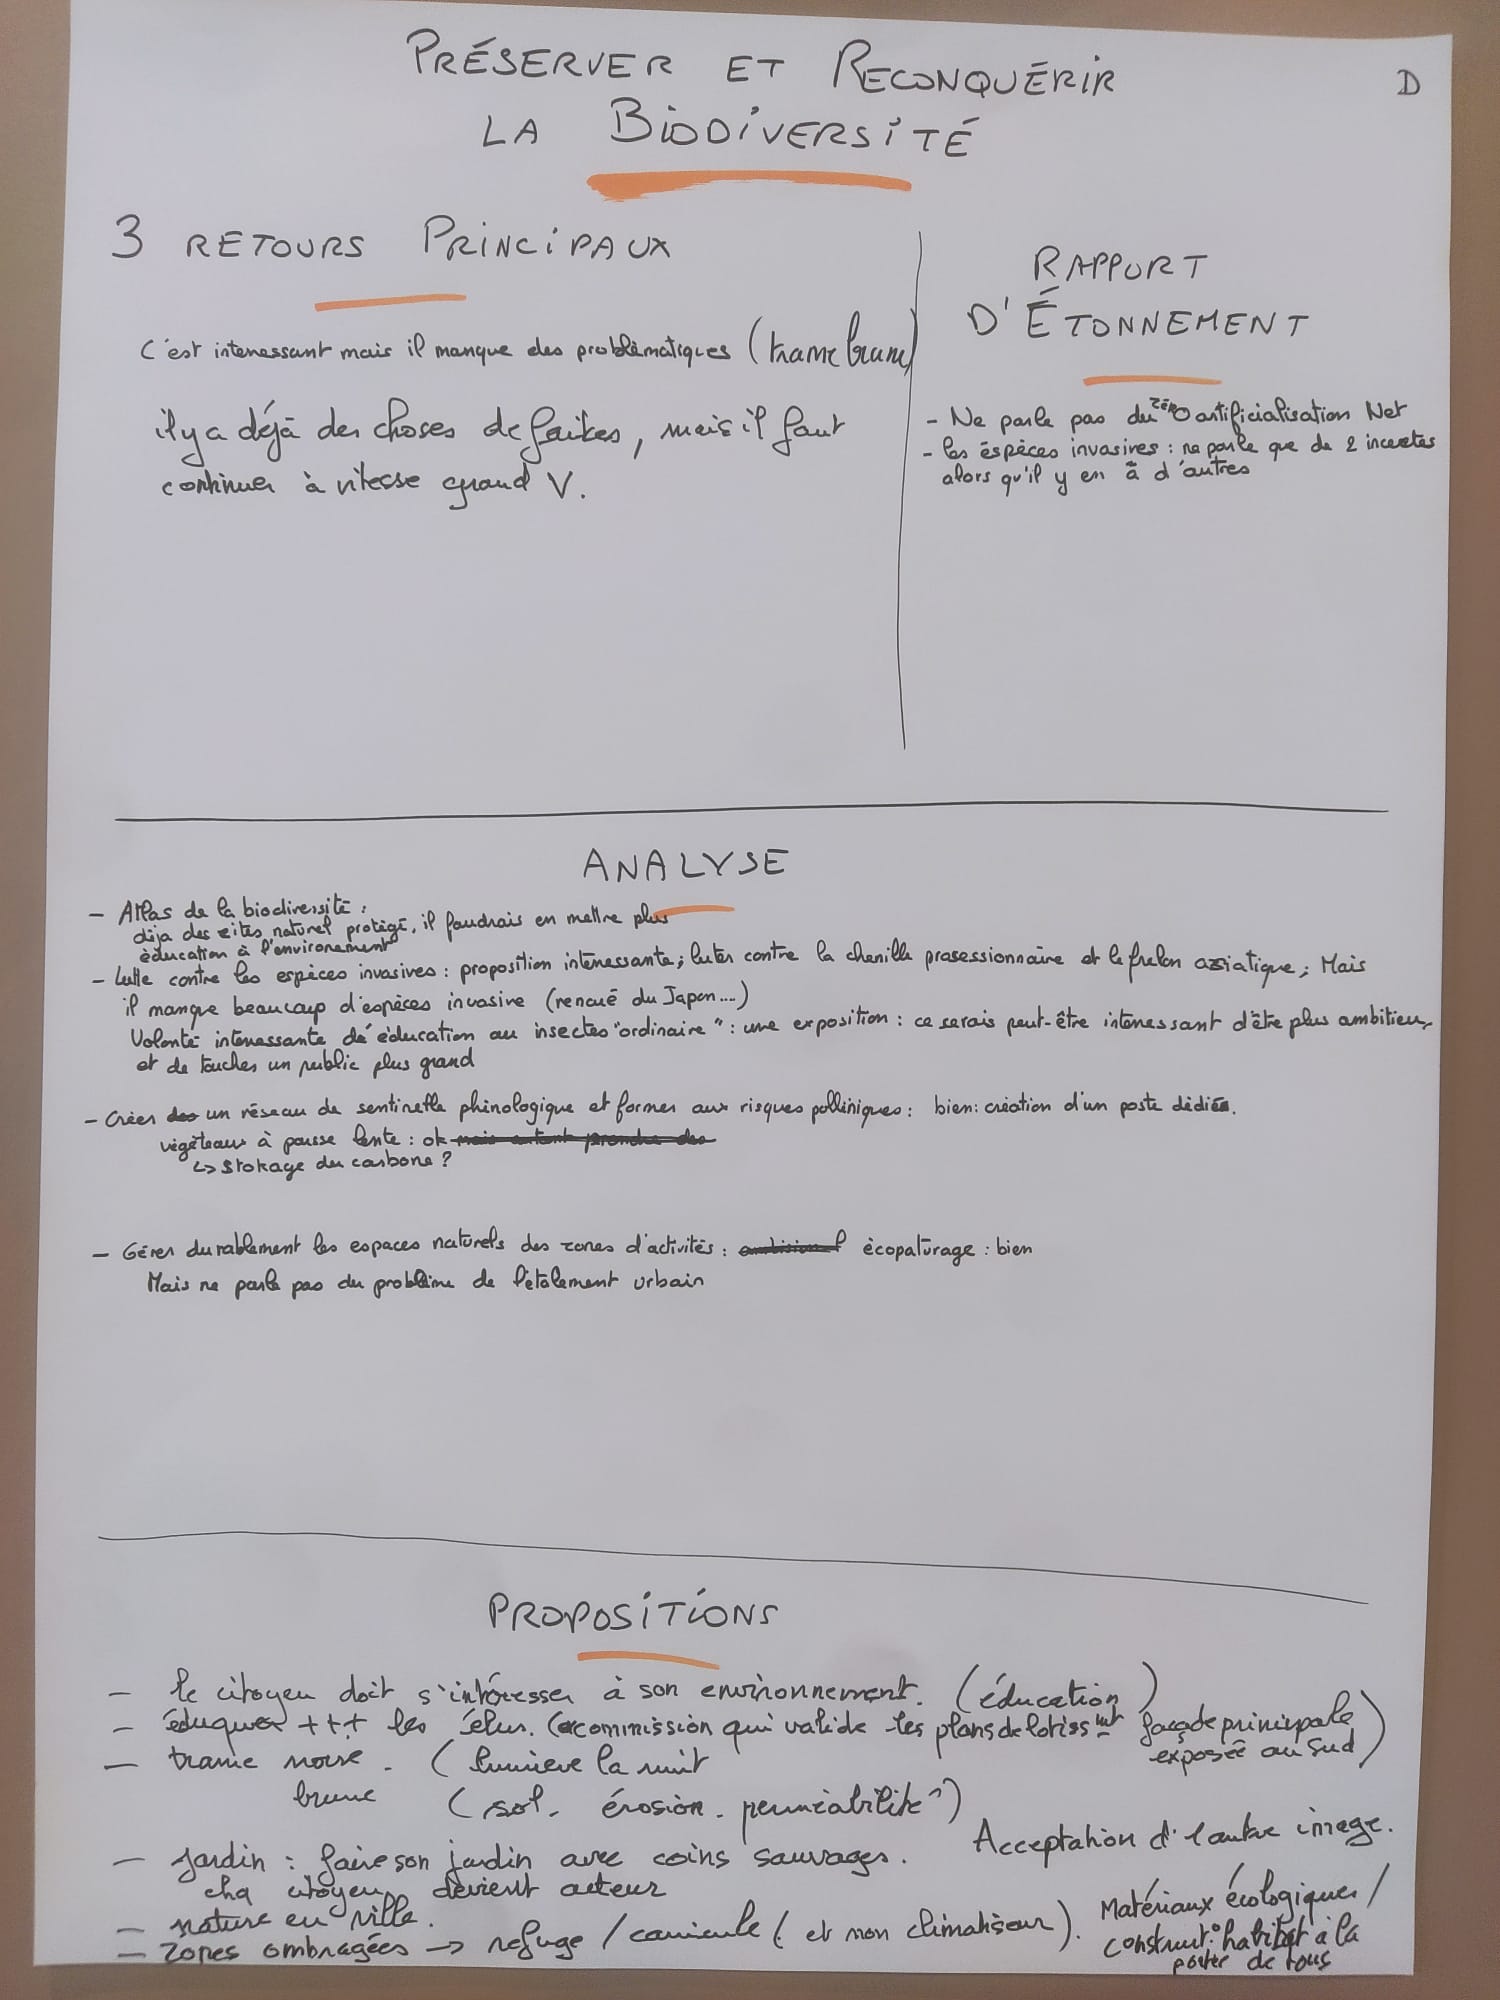 PRÉSERVER ET RECONQUÉRIR
D
LA BIODIVERSITÉ
3 RETOURS PRINCIPAUX
C'est interessant mais il manque des problèmatiques (trame brune)
il y a déjà des choses de faites, mais il faut
continuer à vitesse grand V.
RAPPORT
D'ÉTONNEMENT
- Ne parle pas du zéro artificialisation Net
- les éspèces invasires : ne parle que de 2 incectes
alors qu'il y en à d'autres
ANALYSE
- Atlas de la biodiversité :
dèja des sites naturel protégé, il faudrais en mettre plus
èducation à l'environement
- lutte contre les espèces invasives : proposition interessante ; luter contre la chenille prosessionnaire et le frelon asiatique ; Mais
il manque beaucoup d'espèces invasive (renoué du Japon....)
Volonté interessante de èducation au insectes "ordinaire" : une exposition : ce serais peut-être interessant d'être plus ambitieux
et de touches un public plus grand
- Créer des un réseau de sentinelle phénologique et former aux risques polliniques : bien : création d'un poste dédiée.
végétaux à pousse lente : ok mais autant prendre des
↳ stokage du carbone ?
- Gérer durablement les espaces naturels des zones d'activités : écopaturage : bien
Mais ne parle pas du problème de l'étalement urbain
PROPOSITIONS
- le citoyen doit s'intéresser à son environnement. (éducation)
- éduquer +++ les élus. (commission qui valide les plans de lotissmt façade principale
exposée au Sud)
- trame noire . (lumière la nuit
brune (sol. érosion. perméabilité)
- Jardin : faire son jardin avec coins sauvages. Acceptation d'1 autre image.
chq citoyen devient acteur
- nature en ville.
- Zones ombragées → refuge / canicule (et non climatiseur).
Matériaux écologiques /
construct° habitat à la
portée de tous